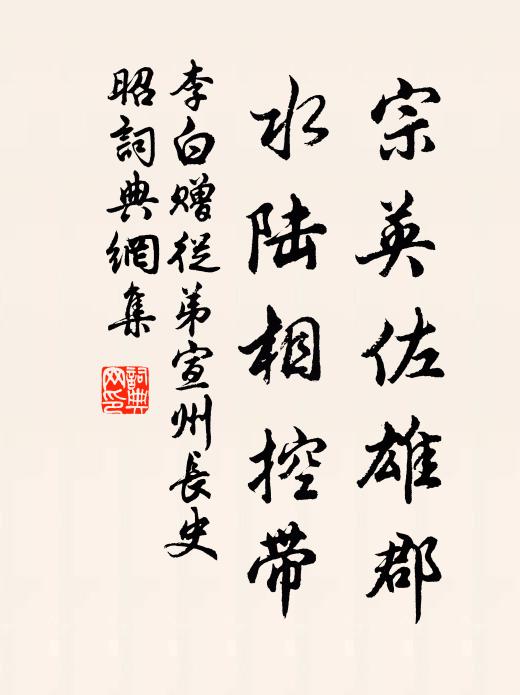 宗英佐雄郡
水陆相控帶
李白赠從弟宣州長史
昭詞典網集
詞典网印